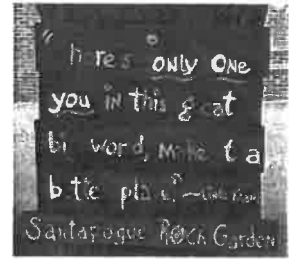 "There's only One
you in this great
big world, make it a
better place."
Santarogue ROCK Garden